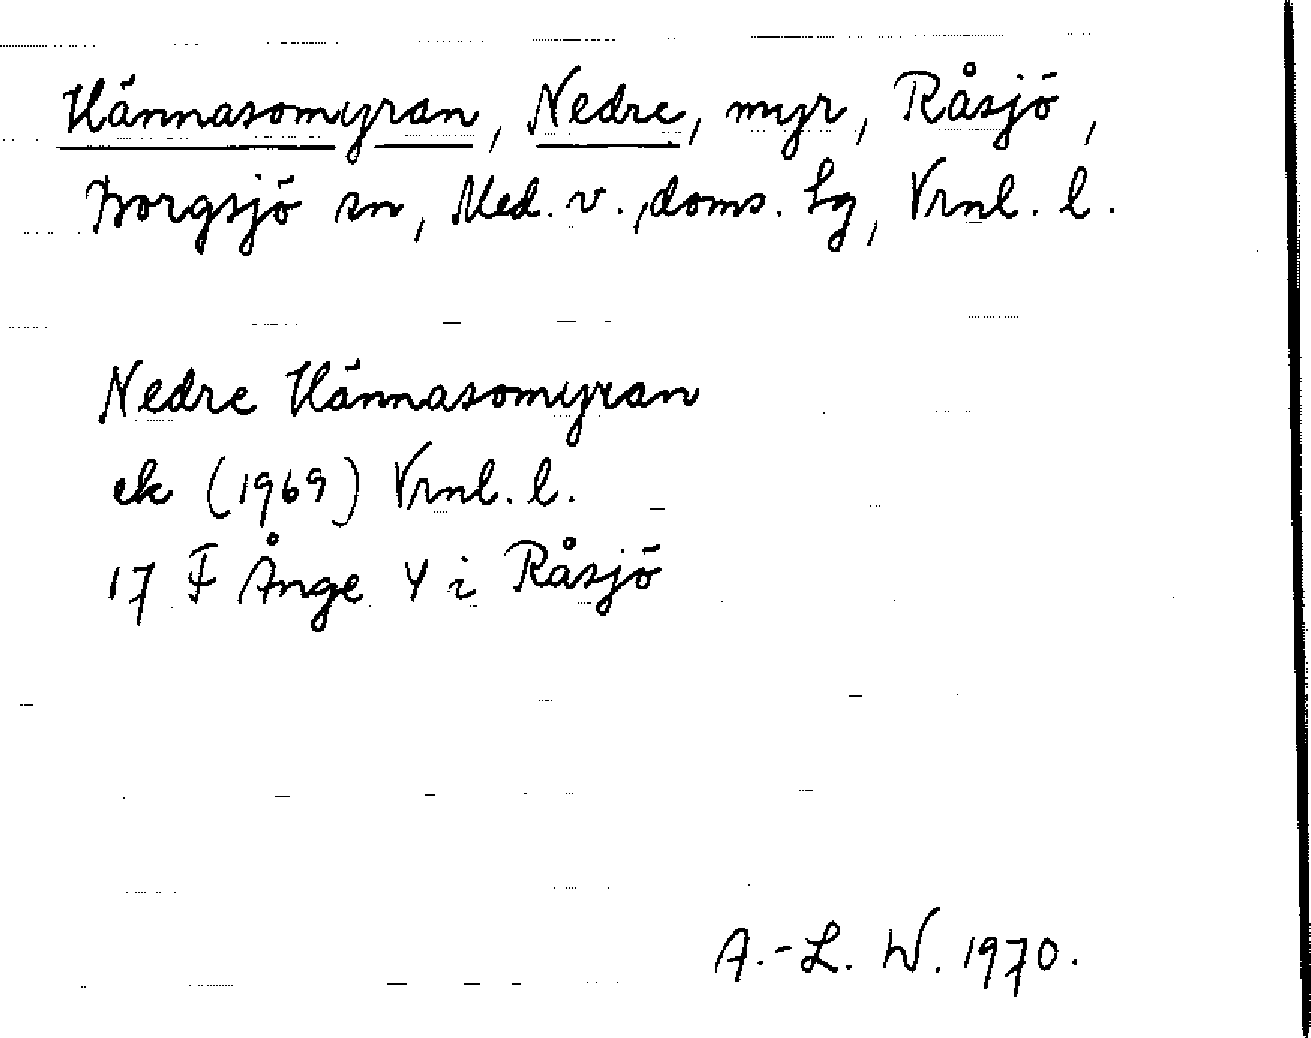 Hännasomyran, Nedre, myr, Råsjö,
Borgsjö sn, Med. v., doms. lg, Vrnl. l.
Nedre Hännasomyran
ek (1969) Vrnl. l.
17 F Ånge 4 i Råsjö
A.-L. W. 1970.